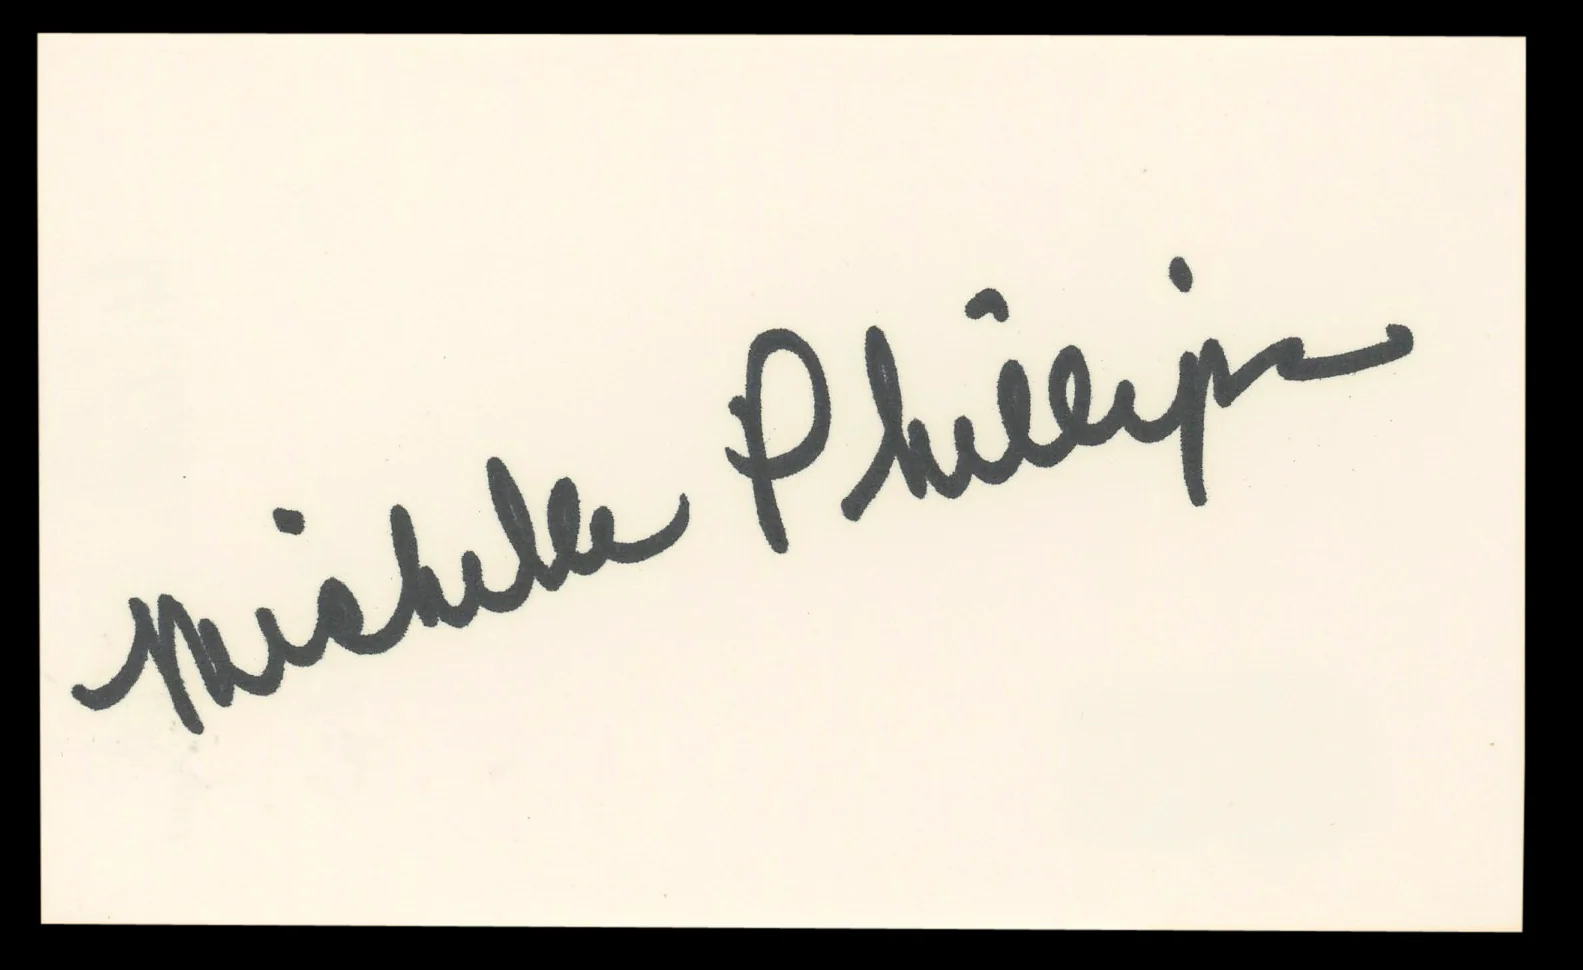 Michelle Phillips